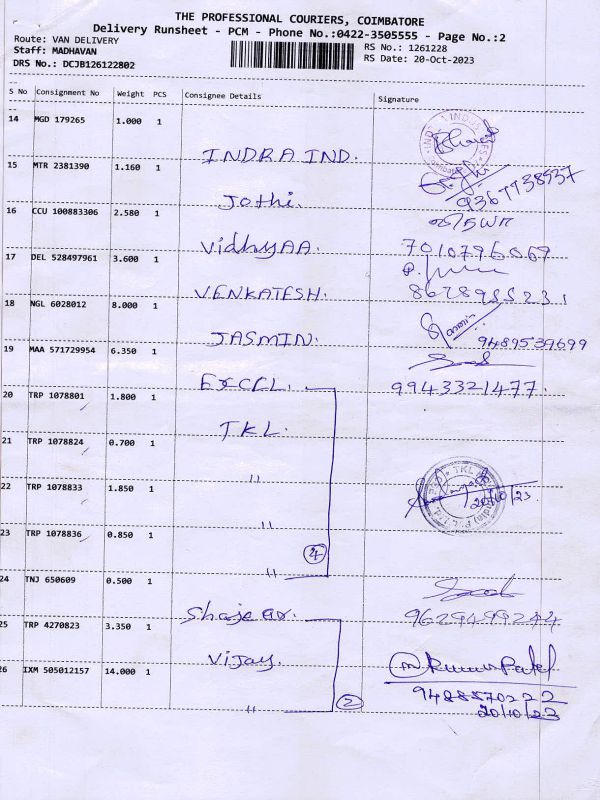 THE PROFESSIONAL COURIERS, COIMBATORE
Delivery Runsheet - PCM - Phone No.:0422-3505555 - Page No.:2
Route: VAN DELIVERY
Staff: MADHAVAN
DRS No.: DCJB126122802
RS No.: 1261228
RS Date: 20-Oct-2023
S No Consignment No Weight PCS Consignee Details Signature
14 MGD 179265 1.000 1
INDRA IND.
15 MTR 2381390 1.160 1
Jothi. 9367738937
16 CCU 100883306 2.580 1
VidhyAA. 7010796069
17 DEL 528497961 3.600 1
VENKATESH. 8678955231
18 NGL 6028012 8.000 1
Jasmin
JASMIN. 9489539699
19 MAA 571729954 6.350 1
EXCEL. 9943321477.
20 TRP 1078801 1.800 1
TKL.
21 TRP 1078824 0.700 1
"
22 TRP 1078833 1.850 1
TKL
20/10/23.
"
23 TRP 1078836 0.850 1
4
"
24 TNJ 650609 0.500 1
9629499244
25 TRP 4270823 3.350 1
Vijay.
26 IXM 505012157 14.000 1
9488570222
" 2
20/10/23